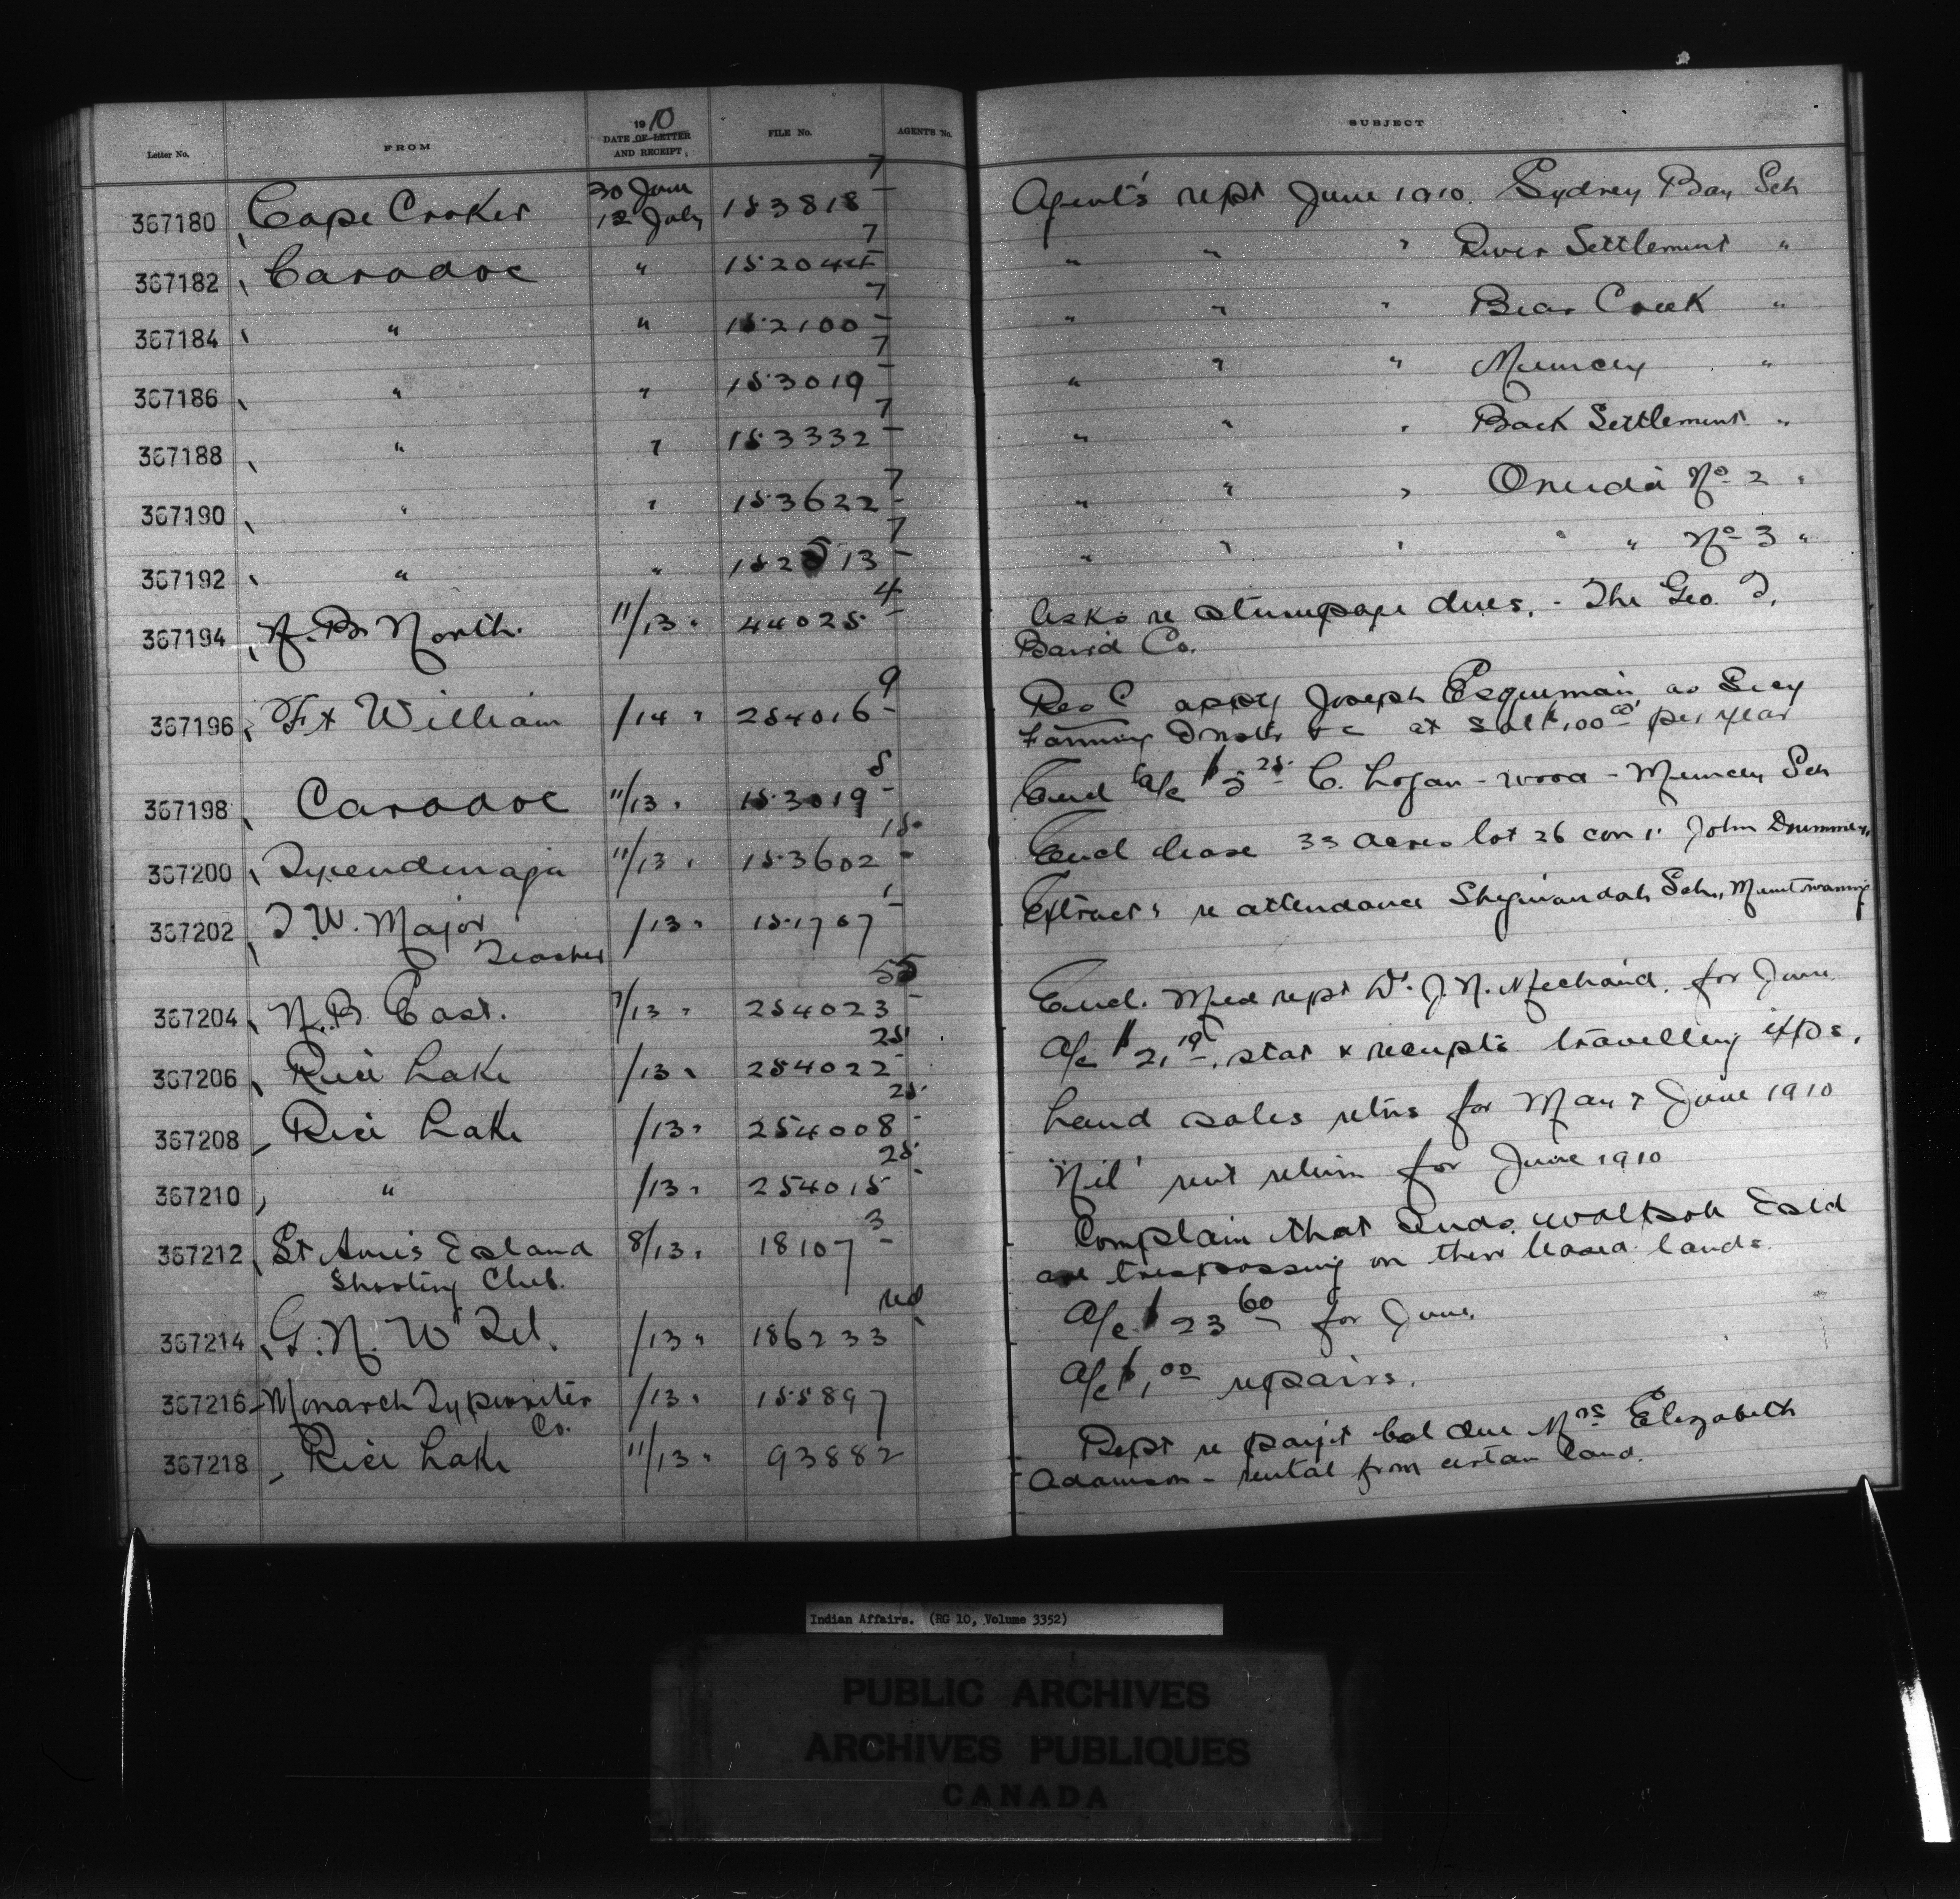 Letter No. FROM 1910 DATE OF LETTER AND RECEIPT FILE No. AGENTS No. SUBJECT
367180 Cape Croker 30 June 12 July 153818-7 Agent's rept June 1910. Sydney Bay Sch
367182 Caradoc " 152044-7 " " " River Settlement "
367184 " " 152100-7 " " " Bear Creek "
367186 " " 153019-7 " " " Muncey "
367188 " " 153332-7 " " " Back Settlement "
367190 " " 153622-7 " " " Oneida No 2 "
367192 " " 152513-7 " " " " " No 3 "
367194 N. B. North. 11/13 " 44025-4 Asks re stumpage dues. - The Geo. T.
Baird Co.
367196 Ft William /14 " 254016-9 Rec C appt Joseph Esquimain as Secy
at sal $100 00 per year
367198 Caradoc 11/13 " 153019-5 Encl a/c $5 25 C. Logan - wood - Muncey Sch
367200 Tyendinaga 11/13 " 153602-15 Encl lease 33 acres lot 26 con 1. John
367202 T. W. Major /13 " 151707-1 Extracts re attendance Shegiwandah Sch,
Teacher
367204 N. B. East. 7/13 " 254023-55 Encl. Med rept Dr. for June
367206 Rice Lake /13 " 254022-25 a/c $21 19, stat & receipts travelling exps.
367208 Rice Lake /13 " 254008-25 Land sales retns for May & June 1910
367210 " /13 " 254015-25 'Nil' rent return for June 1910
367212 St Ann's Island 8/13 " 18107-3 Complain that Inds. Walpole Isld
Shooting Club. are trespassing on their leased lands.
367214 G. N. W Tel. /13 " 186233 red a/c $23 60 for June.
367216 Monarch Typewriter /13 " 155897 a/c $1.00 repairs.
Co.
367218 Rice Lake 11/13 " 93882 Rept re payt bal due Mrs Elizabeth
Adamson - rental from certain land.
Indian Affairs. (RG 10, Volume 3352)
PUBLIC ARCHIVES
ARCHIVES PUBLIQUES
CANADA